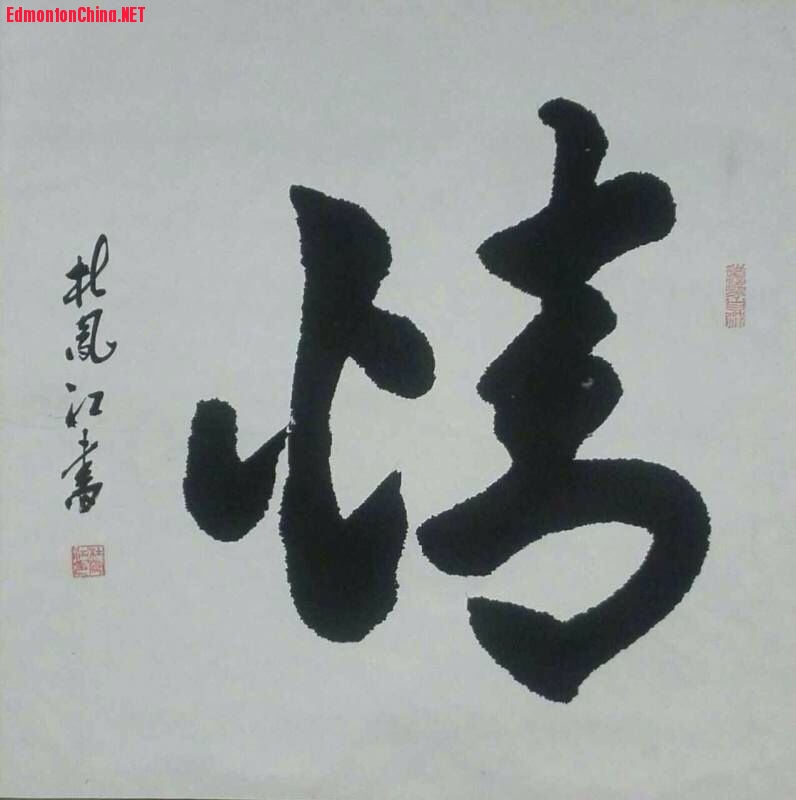 EdmontonChina.NET
情
杜凤江書